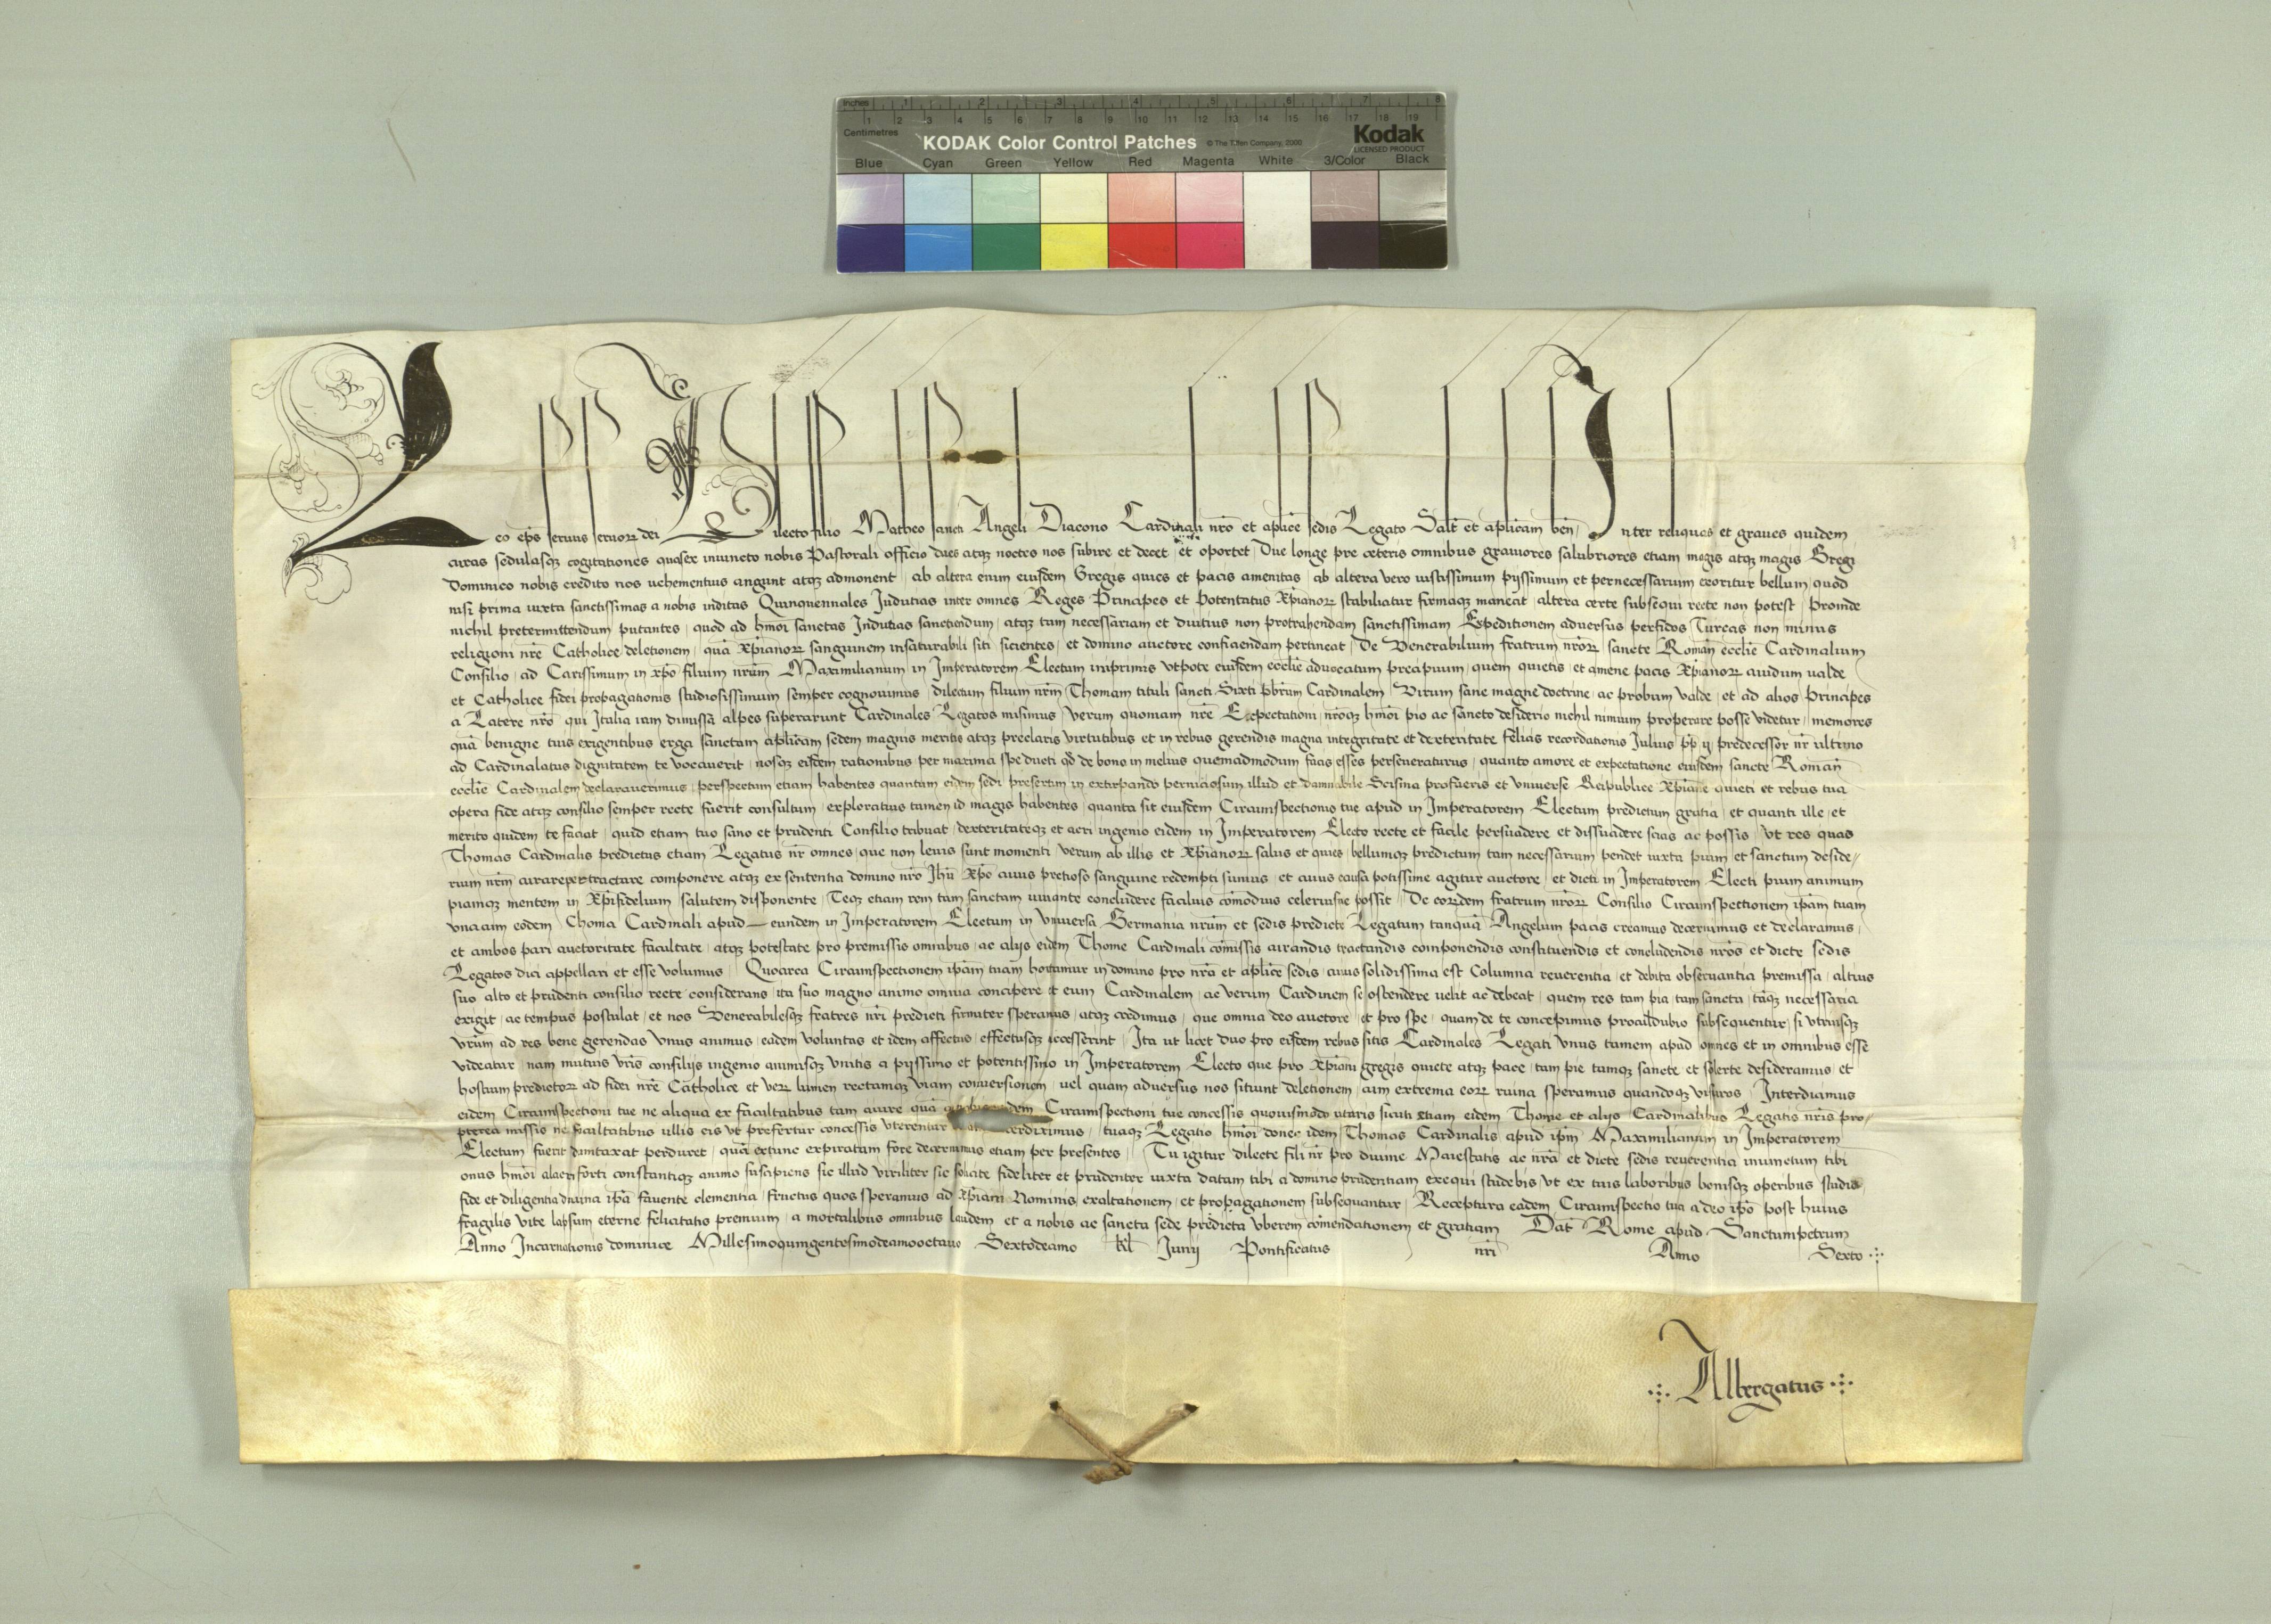 Inches 1 2 3 4 5 6 7 8
Centimetres 1 2 3 4 5 6 7 8 9 10 11 12 13 14 15 16 17 18 19
KODAK Color Control Patches © The Tiffen Company, 2000 Kodak
LICENSED PRODUCT
Blue Cyan Green Yellow Red Magenta White 3/Color Black
Leo ep̄s seruus seruoꝝ dei Dilecto filio Matheo sancti Angeli Diacono Cardinali nr̄o et aplicē sedis Legato Salt̄ et aplicām ben̄ Inter reliquas et graues quidem
curas sedulasqꝫ cogitationes quas ex iniuncto nobis Pastorali officio dies atqꝫ noctes nos subire et decet et oportet Due longe pre ceteris omnibus grauiores salubriores etiam magis atqꝫ magis Gregi
Dominico nobis credito nos uehementius angunt atqꝫ admonent ab altera enim eiusdem Gregis quies et pacis amenitas ab altera vero iustissimum pijssimum et pernecessarium exoritur bellum quod
nisi prima iuxta sanctissimas a nobis inditas Quinquennales Indutias inter omnes Reges Principes et Potentatus Xp̄ianoꝝ stabiliatur firmaqꝫ maneat altera certe subsequi recte non potest Proinde
nichil pretermittendum putantes quod ad hm̄oi sanctas Indutias sanctiendum atqꝫ tam necessariam et diutius non protrahendam sanctissimam Expeditionem aduersus perfidos Turcas non minus
religioni nr̄e Catholice deletionem quā Xp̄ianoꝝ sanguinem insaturabili siti sicientes et domino auctore conficiendam pertineat De Venerabilium fratrum nr̄oꝝ sancte Roman̄ ecclīe Cardinalium
Consilio ad Carissimum in xp̄o filium nr̄um Maximilianum in Imperatorem Electum inprimis vtpote eiusdem ecclīe aduocatum precipuum quem quietis et amene pacis Xp̄ianoꝝ auidum valde
et Catholice fidei propagationis studiosissimum semper cognouimus dilectum filium nr̄m Thomam tituli sancti Sixti pb̄rum Cardinalem Virum sane magne doctrine ac probum valde et ad alios Principes
a Latere nr̄o qui Italia iam dimissa alpes superarunt Cardinales Legatos misimus verum quoniam nr̄e Expectationi nr̄oqꝫ hm̄oi pio ac sancto desiderio nichil nimium properare posse videtur memores
quā benigne tuis exigentibus erga sanctam aplicām sedem magnis meritis atqꝫ preclaris virtutibus et in rebus gerendis magna integritate et dexteritate felicis recordationis Iulius pp̄ ij predecessor nr̄ ultimo
ad Cardinalatus dignitatem te vocauerit nosqꝫ eisdem rationibus per maxima spe ducti qd̄ de bono in melius quemadmodum facis esses perseueraturus quanto amore et expectatione eiusdem sancte Roman̄
ecclīe Cardinalem declarauerimus perspectum etiam habentes quantum eidem sedi presertim in extirpando perniciosum illud et damnabile Scisma profueris et vniuerse Reipublice Xp̄iane quieti et rebus tua
opera fide atqꝫ consilio semper recte fuerit consultum exploratius tamen id magis habentes quanta sit eiusdem Circumspectionis tue apud in Imperatorem Electum predictum gratia et quanti ille et
merito quidem te faciat quid etiam tuo sano et prudenti Consilio tribuat dexteritateqꝫ et acri ingenio eidem in Imperatorem Electo recte et facile persuadere et dissuadere scias ac possis Vt res quas
Thomas Cardinalis predictus etiam Legatus nr̄ omnes que non leuis sunt momenti verum ab illis et Xp̄ianoꝝ salus et quies bellumqꝫ predictum tam necessarium pendet iuxta pium et sanctum deside//
rium nr̄m curare pertractare componere atqꝫ ex sententia domino nr̄o Jhū Xp̄o cuius pretioso sanguine redempti sumus et cuius causa potissime agitur auctore et dicti in Imperatorem Electi pium animum
piamqꝫ mentem in Xp̄ifidelium salutem disponente Teqꝫ etiam rem tam sanctam iuuante concludere facilius com̄odius celeriusue possit De eorundem fratrum nr̄oꝝ Consilio Circumspectionem ipām tuam
vnacum eodem Thoma Cardinali apud eundem in Imperatorem Electum in Vniuersa Germania nr̄um et sedis predicte Legatum tanquā Angelum pacis creamus decernimus et declaramus
et ambos pari auctoritate facultate atqꝫ potestate pro premissis omnibus ac alijs eidem Thome Cardinali com̄issis curandis tractandis componendis constituendis et concludendis nr̄os et dicte sedis
Legatos dici appellari et esse volumus Quocirca Circumspectionem ipām tuam hortamur in domino pro nr̄a et aplicē sedis cuius solidissima est Columna reuerentia et debita obseruantia premissa altius
suo alto et prudenti consilio recte considerans ita suo magno animo omnia concipere et eum Cardinalem ac verum Cardinem se ostendere uelit ac debeat quem res tam pia tam sancta tāqꝫ necessaria
exigit ac tempus postulat et nos Venerabilesqꝫ fratres nr̄i predicti firmiter speramus atqꝫ credimus que omnia deo auctore et pro spe quam de te concepimus proculdubio subsequentur si vtriusqꝫ
vr̄um ad res bene gerendas vnus animus eadem voluntas et idem affectus effectusqꝫ accesserint Ita ut licet duo pro eisdem rebus sitis Cardinales Legati vnus tamen apud omnes et in omnibus esse
videatur nam mutuis vr̄is consilijs ingenio animisqꝫ vnitis a pijssimo et potentissimo in Imperatorem Electo que pro Xp̄iani gregis quiete atqꝫ pace tam pie tamqꝫ sancte et solerte desideramus et
hostium predictoꝝ ad fidei nr̄e Catholice et veꝝ lumen rectamqꝫ viam conuersionem uel quam aduersus nos sitiunt deletionem cum extrema eoꝝ ruina speramus quandoqꝫ visuros Interdicimus
eidem Circumspectioni tue ne aliqua ex facultatibus tam aure quā Circumspectioni tue concessis quouismodo utaris sicuti etiam eidem Thome et alijs Cardinalibus Legatis nr̄is pro//
pterea missis ne facultatibus illis eis vt prefertur concessis vterentur tuaqꝫ Legatio hm̄oi donec idem Thomas Cardinalis apud ipm̄ Maximilianum in Imperatorem
Electum fuerit duntaxat perduret quā extunc expiratam fore decernimus etiam per presentes Tu igitur dilecte fili nr̄ pro diuine Maiestatis ac nr̄a et dicte sedis reuerentia iniunctum tibi
onus hm̄oi alacri forti constantiqꝫ animo suscipiens sic illud viriliter sic solicite fideliter et prudenter iuxta datam tibi a domino prudentiam exequi studebis vt ex tuis laboribus bonisqꝫ operibus studio
fide et diligentia diuina ipā fauente clementia fructus quos speramus ad Xp̄iani Nominis exaltationem et propagationem subsequantur Receptura eadem Circumspectio tua a deo ipō post huius
fragilis vite lapsum eterne felicitatis premium a mortalibus omnibus laudem et a nobis ac sancta sede predicta vberem com̄endationem et gratiam Dat̄ Rome apud Sanctumpetrum
Anno Incarnationis dominice Millesimoquingentesimodecimooctauo Sextodecimo kl̄ Junij Pontificatus nr̄i Anno Sexto
Albergatus